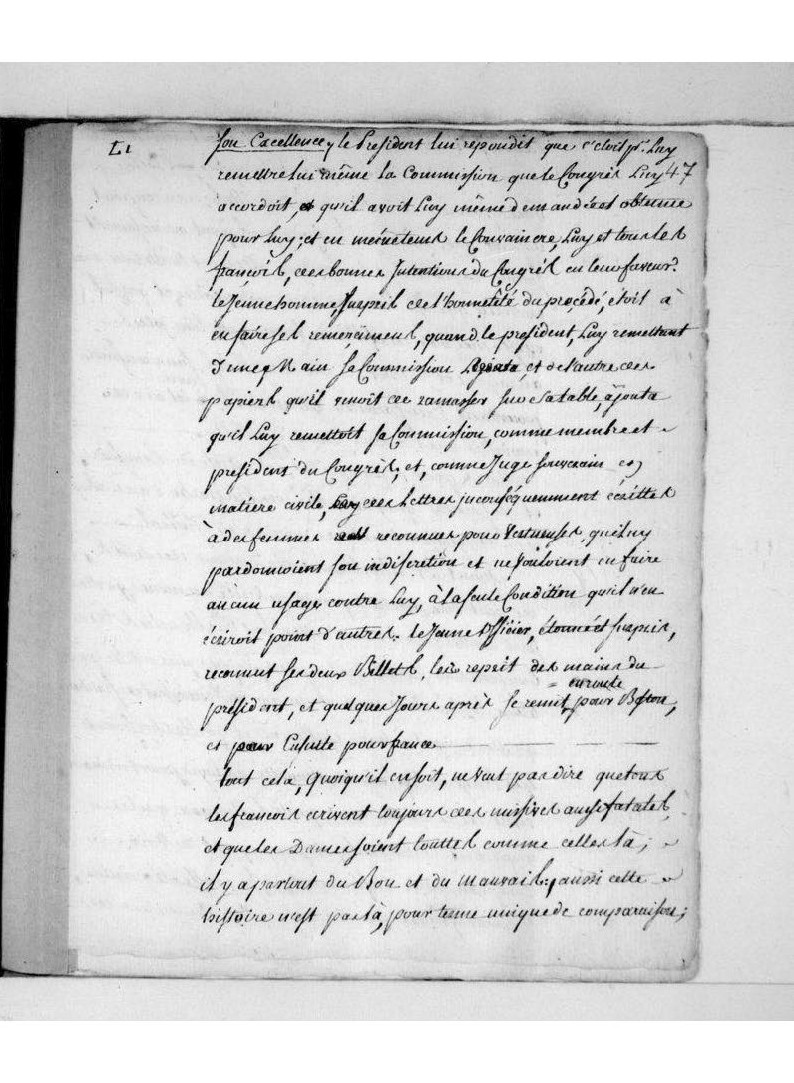 L1
Son Excellence, le President lui repondit que c'etoit pr. Luy
remettre lui même la Commission que le Congrès Luy 47
accordoit, et qu'il avoit Luy même demandée et obtenue
pour Luy; et en même tems le Convaincre, Luy et tous les
françois, des bonnes Intentions du Congrès en leur faveur.
le Jeune homme, surpris de l'honnêteté du procédé, étoit à
en faire ses remerciments, quand le president, Luy remettant
D'une Main sa Commission et de l'autre des
papiers qu'il venoit de ramasser sur sa table, ajouta
qu'il Luy remettoit sa Commission, comme membre et
president du Congrès, et, comme Juge souverain en
matière civile, des Lettres inconséquemment écrittes
à des femmes reconnues pour Vertueuses, qui luy
pardonnoient son indiscretion et ne vouloient en faire
aucun usage contre Luy, à la seule Condition qu'il n'en
écriroit point d'autres. le Jeune Officier, étonné et surpris,
reconnut ses deux Billets, les reprit des mains du
président, et quelques Jours après se remit en route pour Boston,
et Ensuite pour france
Tout cela, Quoiqu'il en soit, ne veut pas dire que tous
les françois ecrivent toujours des missives aussi fatales,
et que les Dames soient touttes comme celles là;
il y a partout du Bon et du mauvais; aussi cette
histoire n'est pas là, pour terme unique de comparaison;